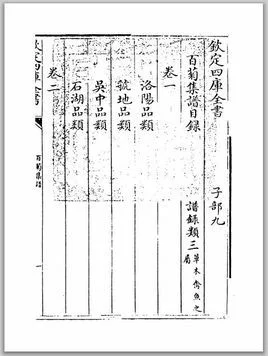 欽定四庫全書
子部九
百菊集譜目錄
譜錄類三草木禽魚之屬
卷一
洛陽品類
虢地品類
吳中品類
石湖品類
卷二
欽定四庫全書
百菊集譜